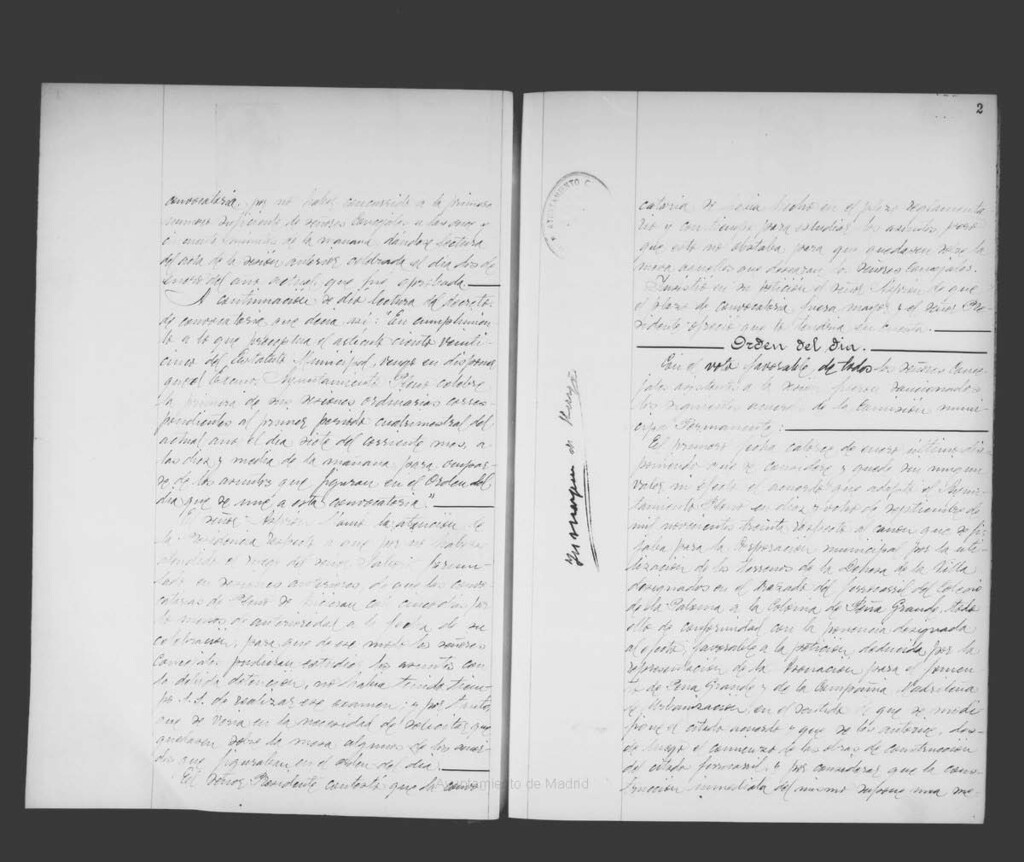 convocatoria, por no haber concurrido a la primera
numero suficiente de señores Concejales a las once y
cincuenta minutos de la mañana dándose lectura
del acta de la sesión anterior celebrada el dia dos de
enero del año actual, que fue aprobada.
A continuación se dio lectura del decreto
de convocatoria que decia asi: "En cumplimien
to a lo que preceptua el articulo ciento veinti-
cinco del Estatuto Municipal, vengo en disponer
que el Excmo. Ayuntamiento Pleno celebre
la primera de sus sesiones ordinarias corres-
pondientes al primer periodo cuatrimestral del
actual año el dia siete del corriente mes, a
las diez y media de la mañana para ocupar-
se de los asuntos que figuran en el Orden del
dia que se une a esta convocatoria."
El señor llamó la atención de
la Presidencia respecto a que por no haberse
atendido el ruego del señor formu-
lado en sesiones anteriores de que las convo-
catorias de Pleno se hicieran con cinco dias por
lo menos de anterioridad a la fecha de su
celebración, para que de ese modo los señores
Concejales pudieran estudiar los asuntos con
la debida detención, no habia tenido tiem
po S.S. de realizar ese examen; y por tanto
que se veria en la necesidad de solicitar que
quedasen sobre la mesa algunos de los asun-
tos que figuraban en el orden del dia.
El señor Presidente contestó que la convo-
2
AYUNTAMIENTO
catoria se habia hecho en el plazo reglamenta
rio y con tiempo para estudiar los asuntos, pero
que esto no obstaba para que quedasen sobre la
mesa aquellos que desearan los señores Concejales.
Insistió en su petición el señor de que
el plazo de convocatoria fuera mayor y el señor Pre-
sidente ofreció que lo tendria en cuenta.
Orden del dia.
Con el voto favorable de todos los señores Conce-
jales asistentes a la sesión fueron sancionados
los siguientes acuerdos de la Comisión muni-
cipal Permanente:
El primero fecha catorce de enero último dis-
poniendo que se considere y quede sin ningun
valor ni efecto el acuerdo que adoptó el Ayun-
tamiento Pleno en diez y ocho de septiembre de
mil novecientos treinta respecto al canon que se fi-
jaba para la Corporación municipal por la uti-
lización de los terrenos de la Dehesa de la Villa
designados en el trazado del ferrocarril del Colegio
de la Paloma a la Colonia de Peña Grande, todo
ello de conformidad con la ponencia designada
al efecto, favorable a la petición deducida por la
representación de la Asociación para el fomen-
to de Peña Grande y de la Compañia Madrileña
de Urbanización, en el sentido de que se modi-
fique el citado acuerdo y que se les autorice, des-
de luego el comienzo de las obras de construcción
del citado ferrocarril, y por considerar que la cons-
trucción inmediata del mismo supone una me-
Ayuntamiento de Madrid